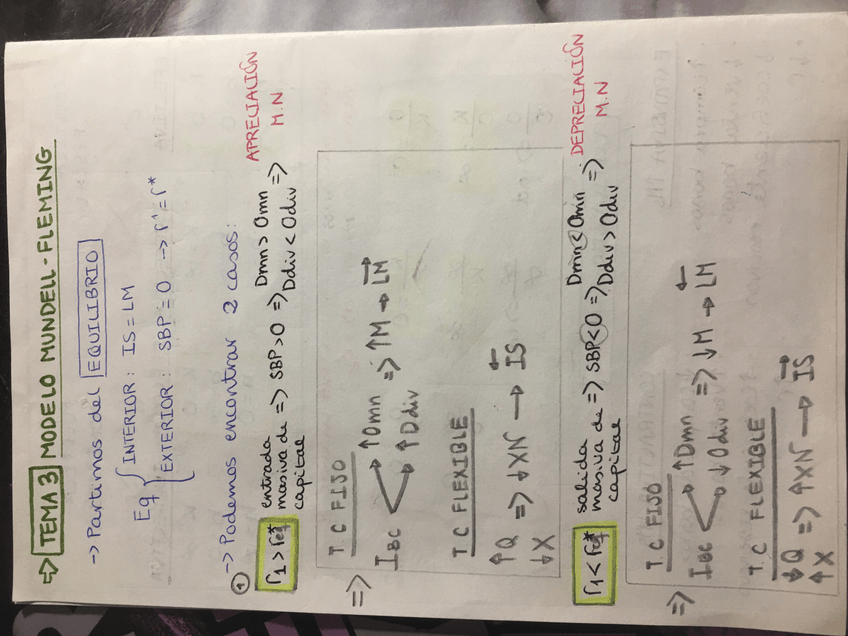 => TEMA 3 MODELO MUNDELL-FLEMING
-> Partimos del EQUILIBRIO
Eq { INTERIOR: IS = LM
EXTERIOR: SBP = 0 -> r¹ = r*
-> Podemos encontrar 2 casos:
①
r₁ > req* entrada masiva de capital => SBP > 0 => Dmn > Omn Ddiv < Odiv => APRECIACIÓN M.N
=> T.C FIJO
IBC ↑Omn ↑Ddiv => ↑M → LM→
T.C FLEXIBLE
↑Q ↓X => ↓XN → IS←
r₁ < req* salida masiva de capital => SBP < 0 => Dmn < Omn Ddiv > Odiv => DEPRECIACIÓN M.N
=> T.C FIJO
IBC ↑Dmn ↓Odiv => ↓M → LM←
T.C FLEXIBLE
↓Q ↑X => ↑XN → IS→